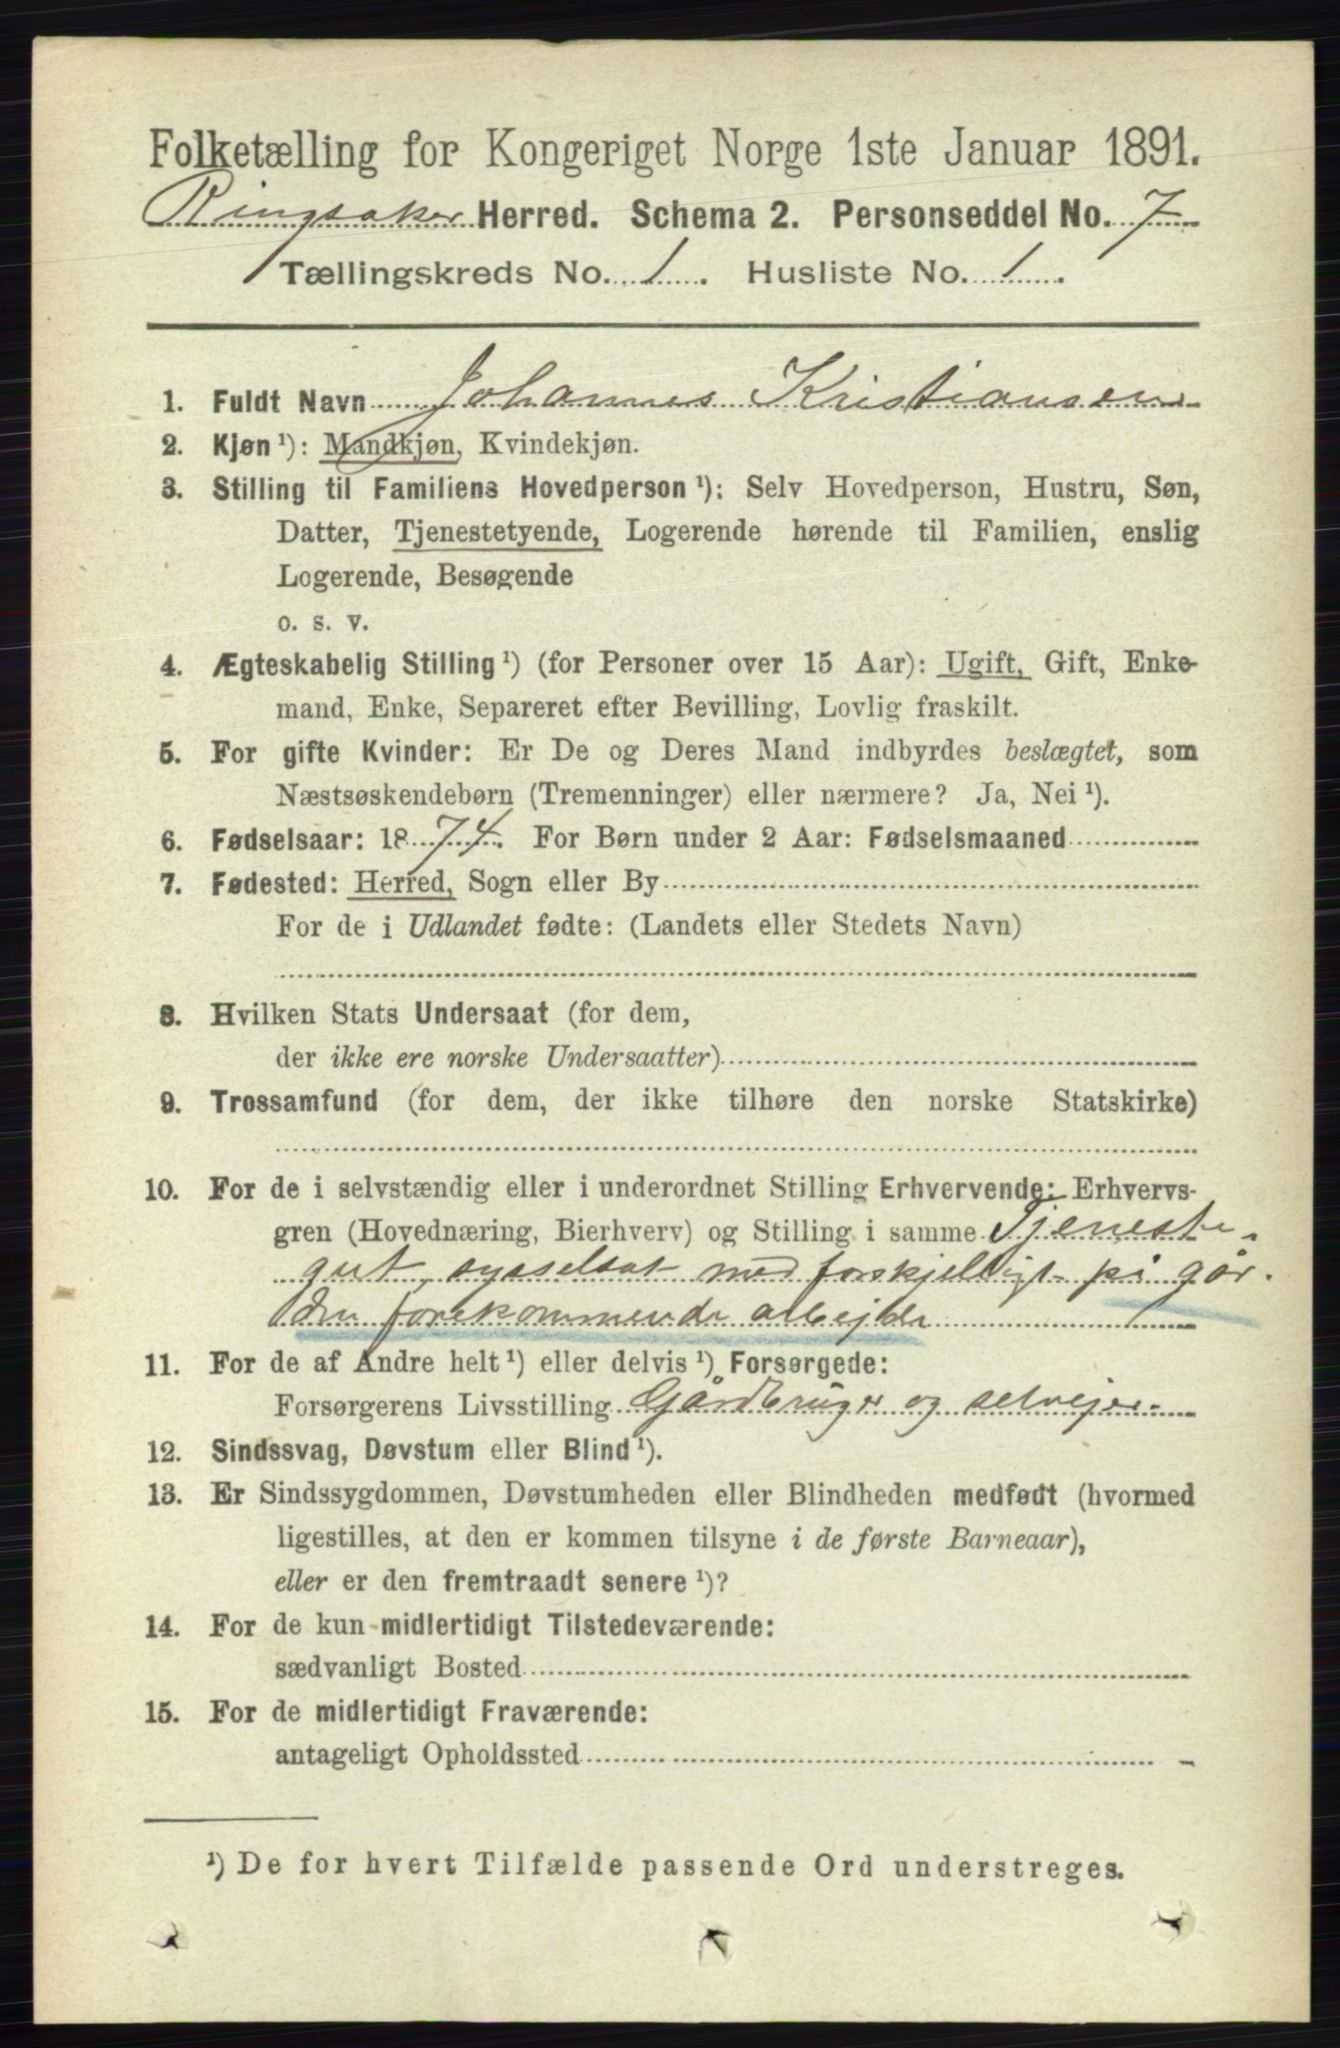 Folketælling for Kongeriget Norge 1ste Januar 1891.
Ringsaker Herred. Schema 2. Personseddel No. 7
Tællingskreds No. 1. Husliste No. 1.
1. Fuldt Navn Johannes Kristiansen
2. Kjøn¹): Mandkjøn, Kvindekjøn.
3. Stilling til Familiens Hovedperson¹): Selv Hovedperson, Hustru, Søn,
Datter, Tjenestetyende, Logerende hørende til Familien, enslig
Logerende, Besøgende
o. s. v.
4. Ægteskabelig Stilling¹) (for Personer over 15 Aar): Ugift, Gift, Enke-
mand, Enke, Separeret efter Bevilling, Lovlig fraskilt.
5. For gifte Kvinder: Er De og Deres Mand indbyrdes beslægtet, som
Næstsøskendebørn (Tremenninger) eller nærmere? Ja, Nei¹).
6. Fødselsaar: 1874. For Børn under 2 Aar: Fødselsmaaned
7. Fødested: Herred, Sogn eller By
For de i Udlandet fødte: (Landets eller Stedets Navn)
8. Hvilken Stats Undersaat (for dem,
der ikke ere norske Undersaatter)
9. Trossamfund (for dem, der ikke tilhøre den norske Statskirke)
10. For de i selvstændig eller i underordnet Stilling Erhvervende: Erhvervs-
gren (Hovednæring, Bierhverv) og Stilling i samme Tjeneste-
gut, sysselsat med forskjelligt på går-
den forekommende arbejde
11. For de af Andre helt¹) eller delvis¹) Forsørgede:
Forsørgerens Livsstilling Gårdbruger og selvejer.
12. Sindssvag, Døvstum eller Blind¹).
13. Er Sindssygdommen, Døvstumheden eller Blindheden medfødt (hvormed
ligestilles, at den er kommen tilsyne i de første Barneaar),
eller er den fremtraadt senere¹)?
14. For de kun midlertidigt Tilstedeværende:
sædvanligt Bosted
15. For de midlertidigt Fraværende:
antageligt Opholdssted
¹) De for hvert Tilfælde passende Ord understreges.